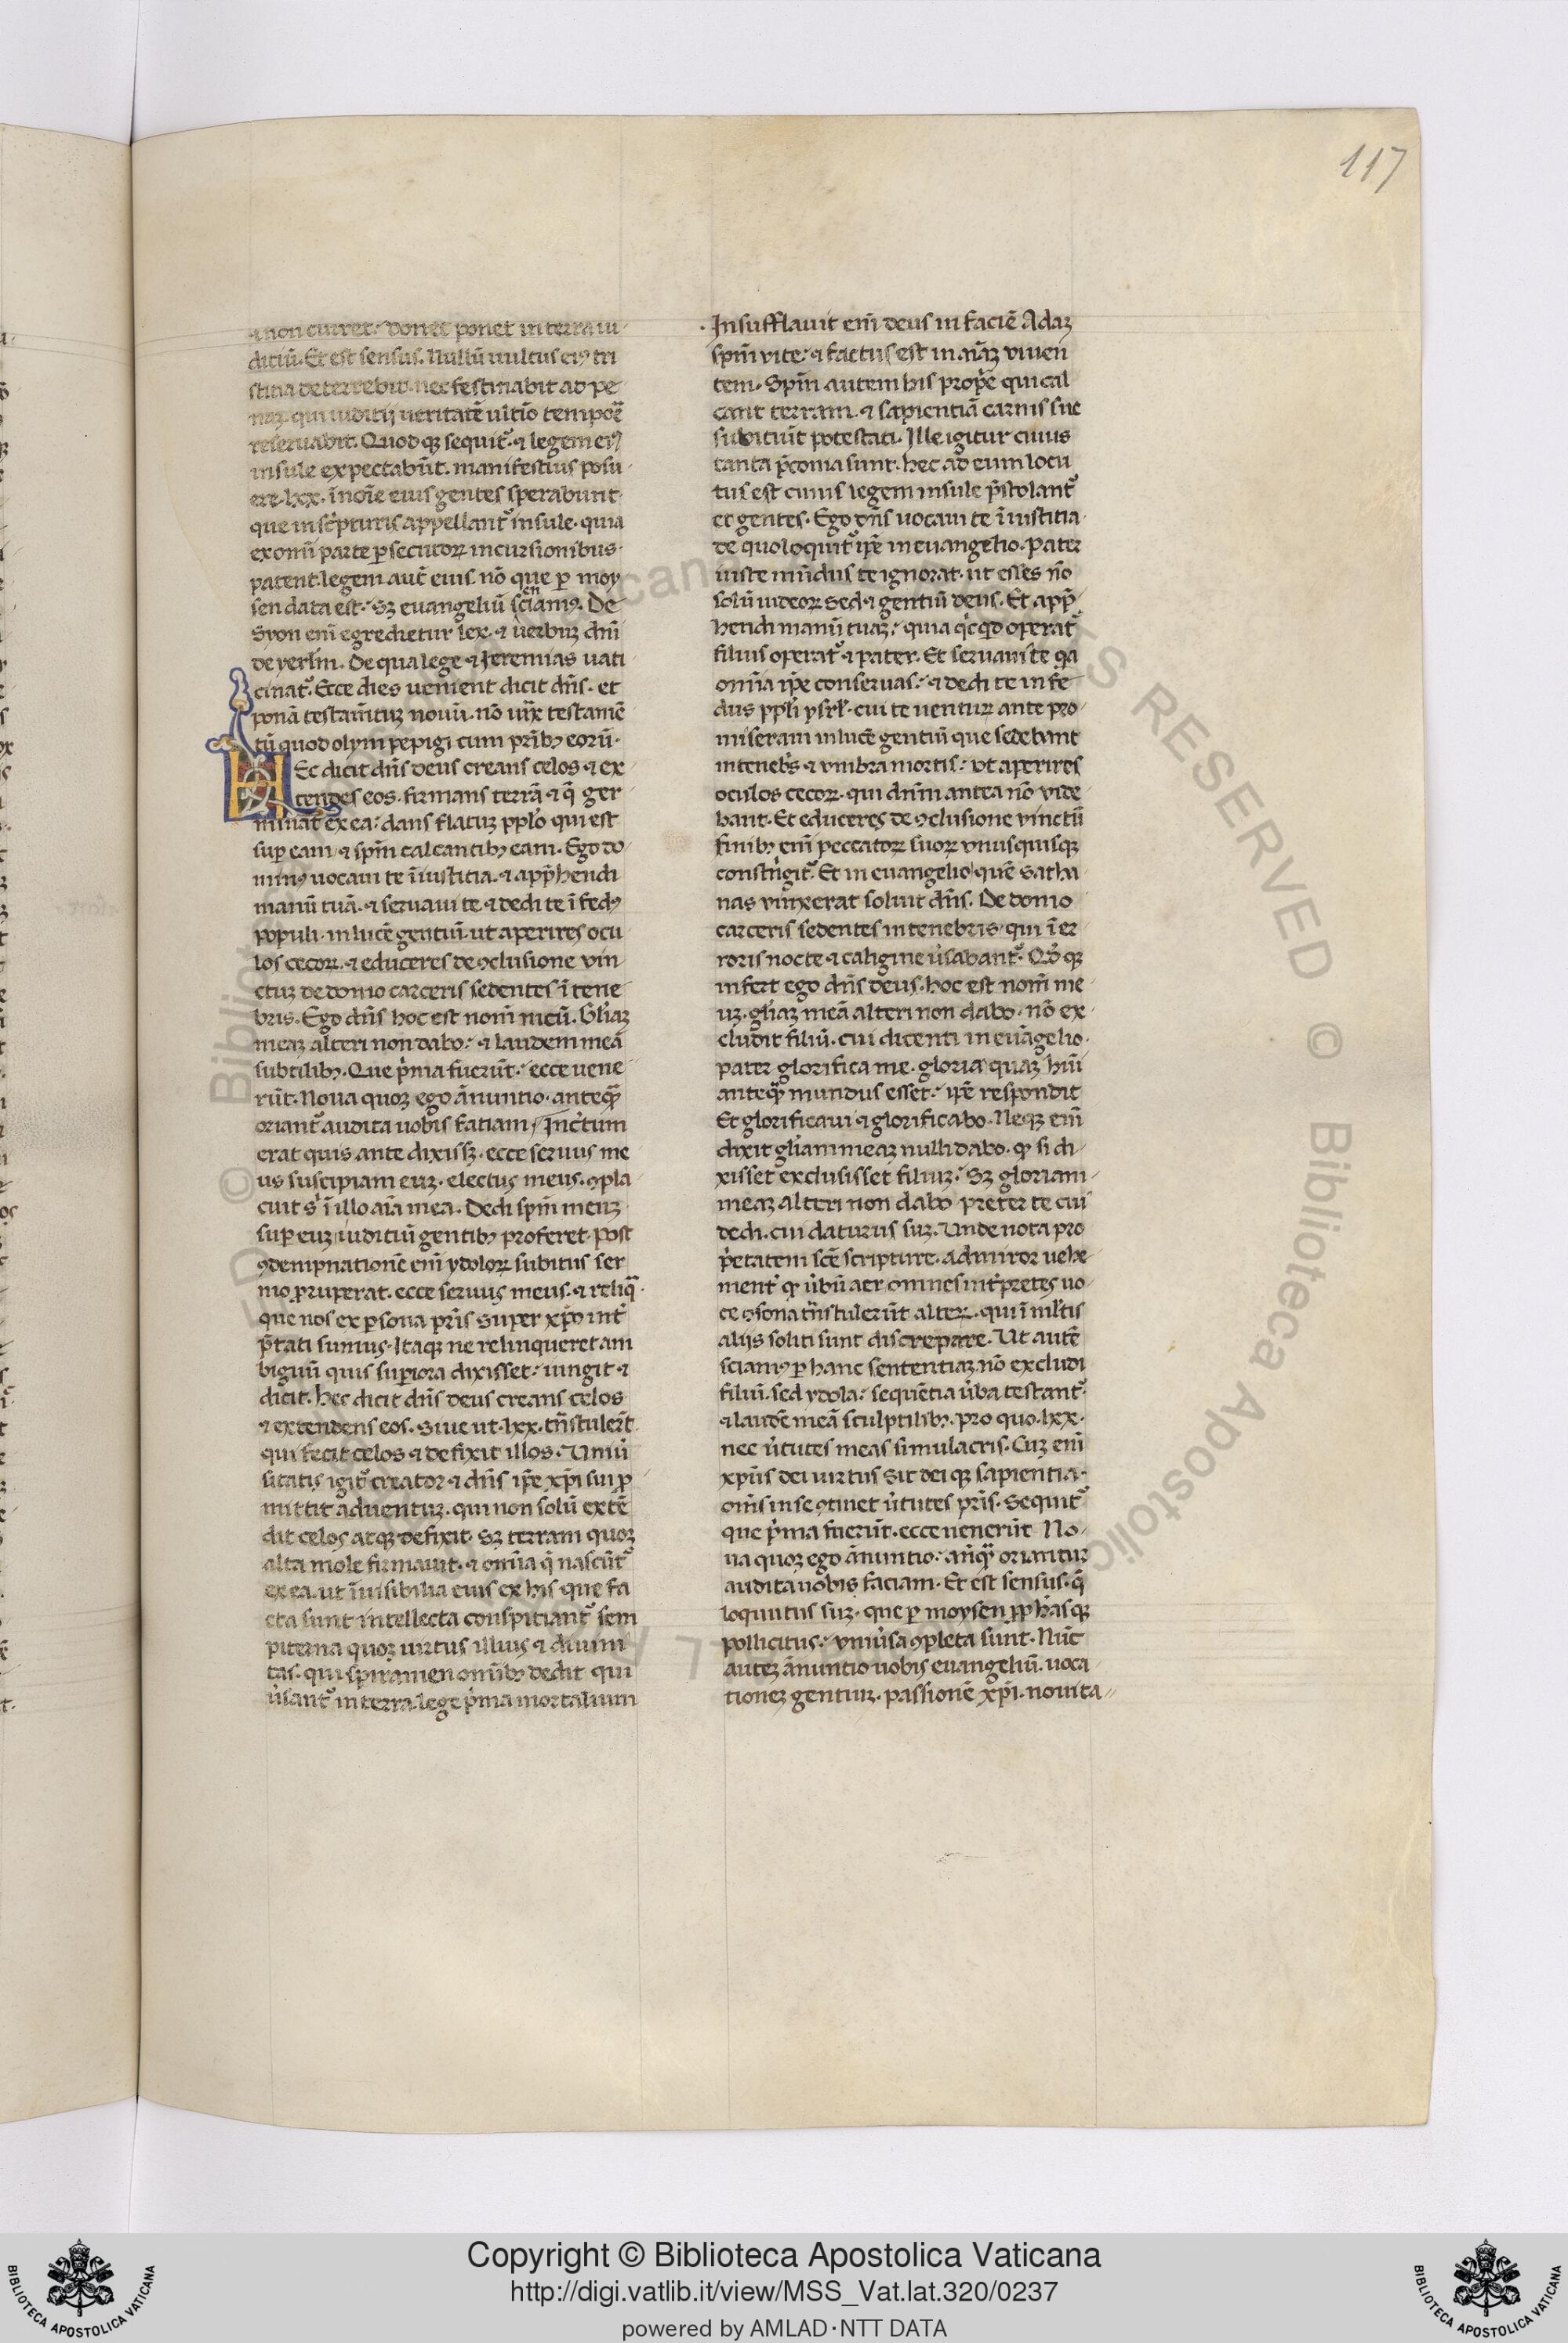 117
⁊ non curret: donec ponet in terra iu
diciũ. Et est sensus. Nullũ uultus eiꝰ tri
stitia deterrebit. nec festinabit ad pe
naꝫ. qui iuditij ueritatẽ ultĩo tempoꝛẽ
reseruabit. Quodqꝫ sequit᷑. ⁊ legem eiꝰ
insule expectabũt. manifestius posu
ere. lxx. ĩ noĩe eius gentes sperabunt
que in sc͛pturis appellant᷑ insule. quia
ex omĩ parte ꝑsecutoꝝ incursionibus
patent. legem aut̃ eius nõ que ꝑ moy
sen data est: sꝫ euangeliũ sciamꝰ. De
Syon eni͂ egredietur lex. ⁊ u̾erbuꝫ dñi
de yerl̃m. De qua lege ⁊ Jeremias uati
cinat᷑. Ecce dies uenient dicit dñs. et
ponã testam̃tuꝫ nouũ. nõ iux̃ testamẽ
tũ quod olym pepigi cum prĩbꝰ eorũ.
HEc dicit dñs deus creans celos ⁊ ex
tendes eos. firmans terrã ⁊ q̃ ger
minãt ex ea: dans flatuꝫ pplo̾ qui est
suꝑ eam ⁊ spm̃ calcantibꝰ eam. Ego do
minꝰ uocaui te ĩ iustitia. ⁊ app̃hendi
manũ tuã. ⁊ seruaui te ⁊ dedi te ĩ fedꝰ
populi. in lucẽ gentiũ. ut aperires ocu
los cecoꝝ. ⁊ educeres de ꝯclusione vin
ctuꝫ de domo carceris sedentes ĩ tene
bris. Ego dñs hoc est nom̃ meũ. Gl̃iaꝫ
meaꝫ alteri non dabo: ⁊ laudem meã
subtilibꝰ. Que p͛ma fuerũt: ecce uene
rũt. Noua quoꝫ ego ãnuntio. anteqꝫ̃
oriant᷑ audita uobis fatiam. Inc̾tum
erat quis ante dixissꝫ. ecce seruus me
us suscipiam euꝫ. electus meus. ꝯpla
cuit s͛ ĩ illo aĩa mea. Dedi spm̃ meuꝫ
suꝑ euꝫ iuditiũ gentibꝰ proferet. Post
ꝯdempnationẽ eni͂ ydoloꝝ subitus ser
mo ꝓruperat. ecce seruus meus. ⁊ reliq̃
que nos ex ꝑsona pr̃is super xp̃o int̾
p̃tati sumus. Itaqꝫ ne relinqueret am
biguũ quis suꝑiora dixisset: iungit ⁊
dicit. hec dicit dñs deus creans celos
⁊ extendens eos. siue ut. lxx. tñstuler̃t
qui fecit celos ⁊ defixit illos. Uniu̾
sitatis igit᷑ creator ⁊ dñs ip̃e xp̃i sui ꝓ
mittit aduentuꝫ. qui non solũ extẽ
dit celos atqꝫ defixit. sꝫ terram quoꝫ
alta mole firmauit. ⁊ omĩa q̃ nascũt᷑
ex ea. ut ĩuisibilia eius ex his que fa
cta sunt intellecta conspitiant᷑ sem
piterna quoꝫ uirtus illius ⁊ diuini
tas. qui spiramen omĩbꝰ dedit qui
u̾sant᷑ in terra. lege p͛ma mortalium
Insufflauit eni͂ deus in faciẽ Adaꝫ
spm̃ vite: ⁊ factus est in aĩaꝫ viuen
tem. Spm̃ autem his prop̾e qui cal
cant terram. ⁊ sapientiã carnis sue
subiciũt potestati. Ille igitur cuius
tanta p̃conia sunt. hec ad eum locu
tus est cuius legem insule p̃stolant᷑
et gentes. Ego dñs uocaui te ĩ iustitia
de quo loquit᷑ ip̃e in euangelio. Pater
iuste mũdus te ignorat. ut esses nõ
solũ iudeoꝝ sed ⁊ gentiũ deus. Et app̃
hendi manũ tuaꝫ: quia q͛cq̃d operat᷑
filius operat᷑ ⁊ pater. Et seruaui te q̃a
omĩa ip̃e conseruas: ⁊ dedi te in fe
dus ppl̃i ysrl̃. cui te uenturꝫ ante pro
miseram in lucẽ gentiũ que sedebant
in teneb͛s ⁊ vmbra mortis: vt aperires
oculos cecoꝝ. qui dñm antea nõ vide
bant. Et educeres de ꝯclusione vinctũ
finibꝰ eni͂ peccatoꝝ suoꝝ vnusquisqꝫ
constri͛git᷑. Et in euangelio quẽ satha
nas vinxerat soluit dñs. De domo
carceris sedentes in tenebris. qui ĩ er
roris nocte ⁊ caligine u̾sabant᷑. Qd̾ qꝫ
infert ego dñs deus. hoc est nom̃ me
uꝫ. gl̃iaꝫ meã alteri non dabo. nõ ex
cludit filiũ. cui dicenti in euãgelio.
pater glorifica me. gloria quaꝫ hĩui
anteqꝫ̃ mundus esset: ip̃e respondit
Et glorificaui ⁊ glorificabo. Neqꝫ eni͂
dixit gl̃iam meaꝫ nulli dabo. qꝫ si di
xisset exclusisset filiuꝫ: Sꝫ gloriam
meaꝫ alteri non dabo preter te cui
dedi. cui daturus suꝫ. Unde nota pro
p̾etatem scẽ scripture. admiror uehe
ment̾ qꝫ u̾bũ acr omnes int̾pretes uo
ce ꝯsona tñstulerũt alteꝝ. qui ĩ ml̃tis
alijs soliti sunt discrepare. Ut autẽ
sciamꝰ ꝑ hanc sententiaꝫ nõ excludi
filiũ. sed ydola: sequẽtia u̾ba testant᷑.
⁊ laudẽ meã sculptilibꝰ. pro quo. lxx.
nec u̾tutes meas simulacris. Cuꝫ eni͂
xpũs dei uirtus sit dei qꝫ sapientia.
om̃s in se ꝯtinet u̾tutes pr̃is. Sequit᷑
que p͛ma fuerũt. ecce uenerũt No
ua quoꝫ ego ãnuntio: añqꝫ̃ oriantur
audita uobis faciam. Et est sensus. q̃
loquutus suꝫ. que ꝑ moysen ꝓph̃as qꝫ
pollicitus: vniu̾sa ꝯpleta sunt. Nũc
auteꝫ ãnuntio uobis euangeliũ. uoca
tioneꝫ gentiuꝫ. passionẽ xp̃i. nouita
Copyright © Biblioteca Apostolica Vaticana
http://digi.vatlib.it/view/MSS_Vat.lat.320/0237
powered by AMLAD·NTT DATA